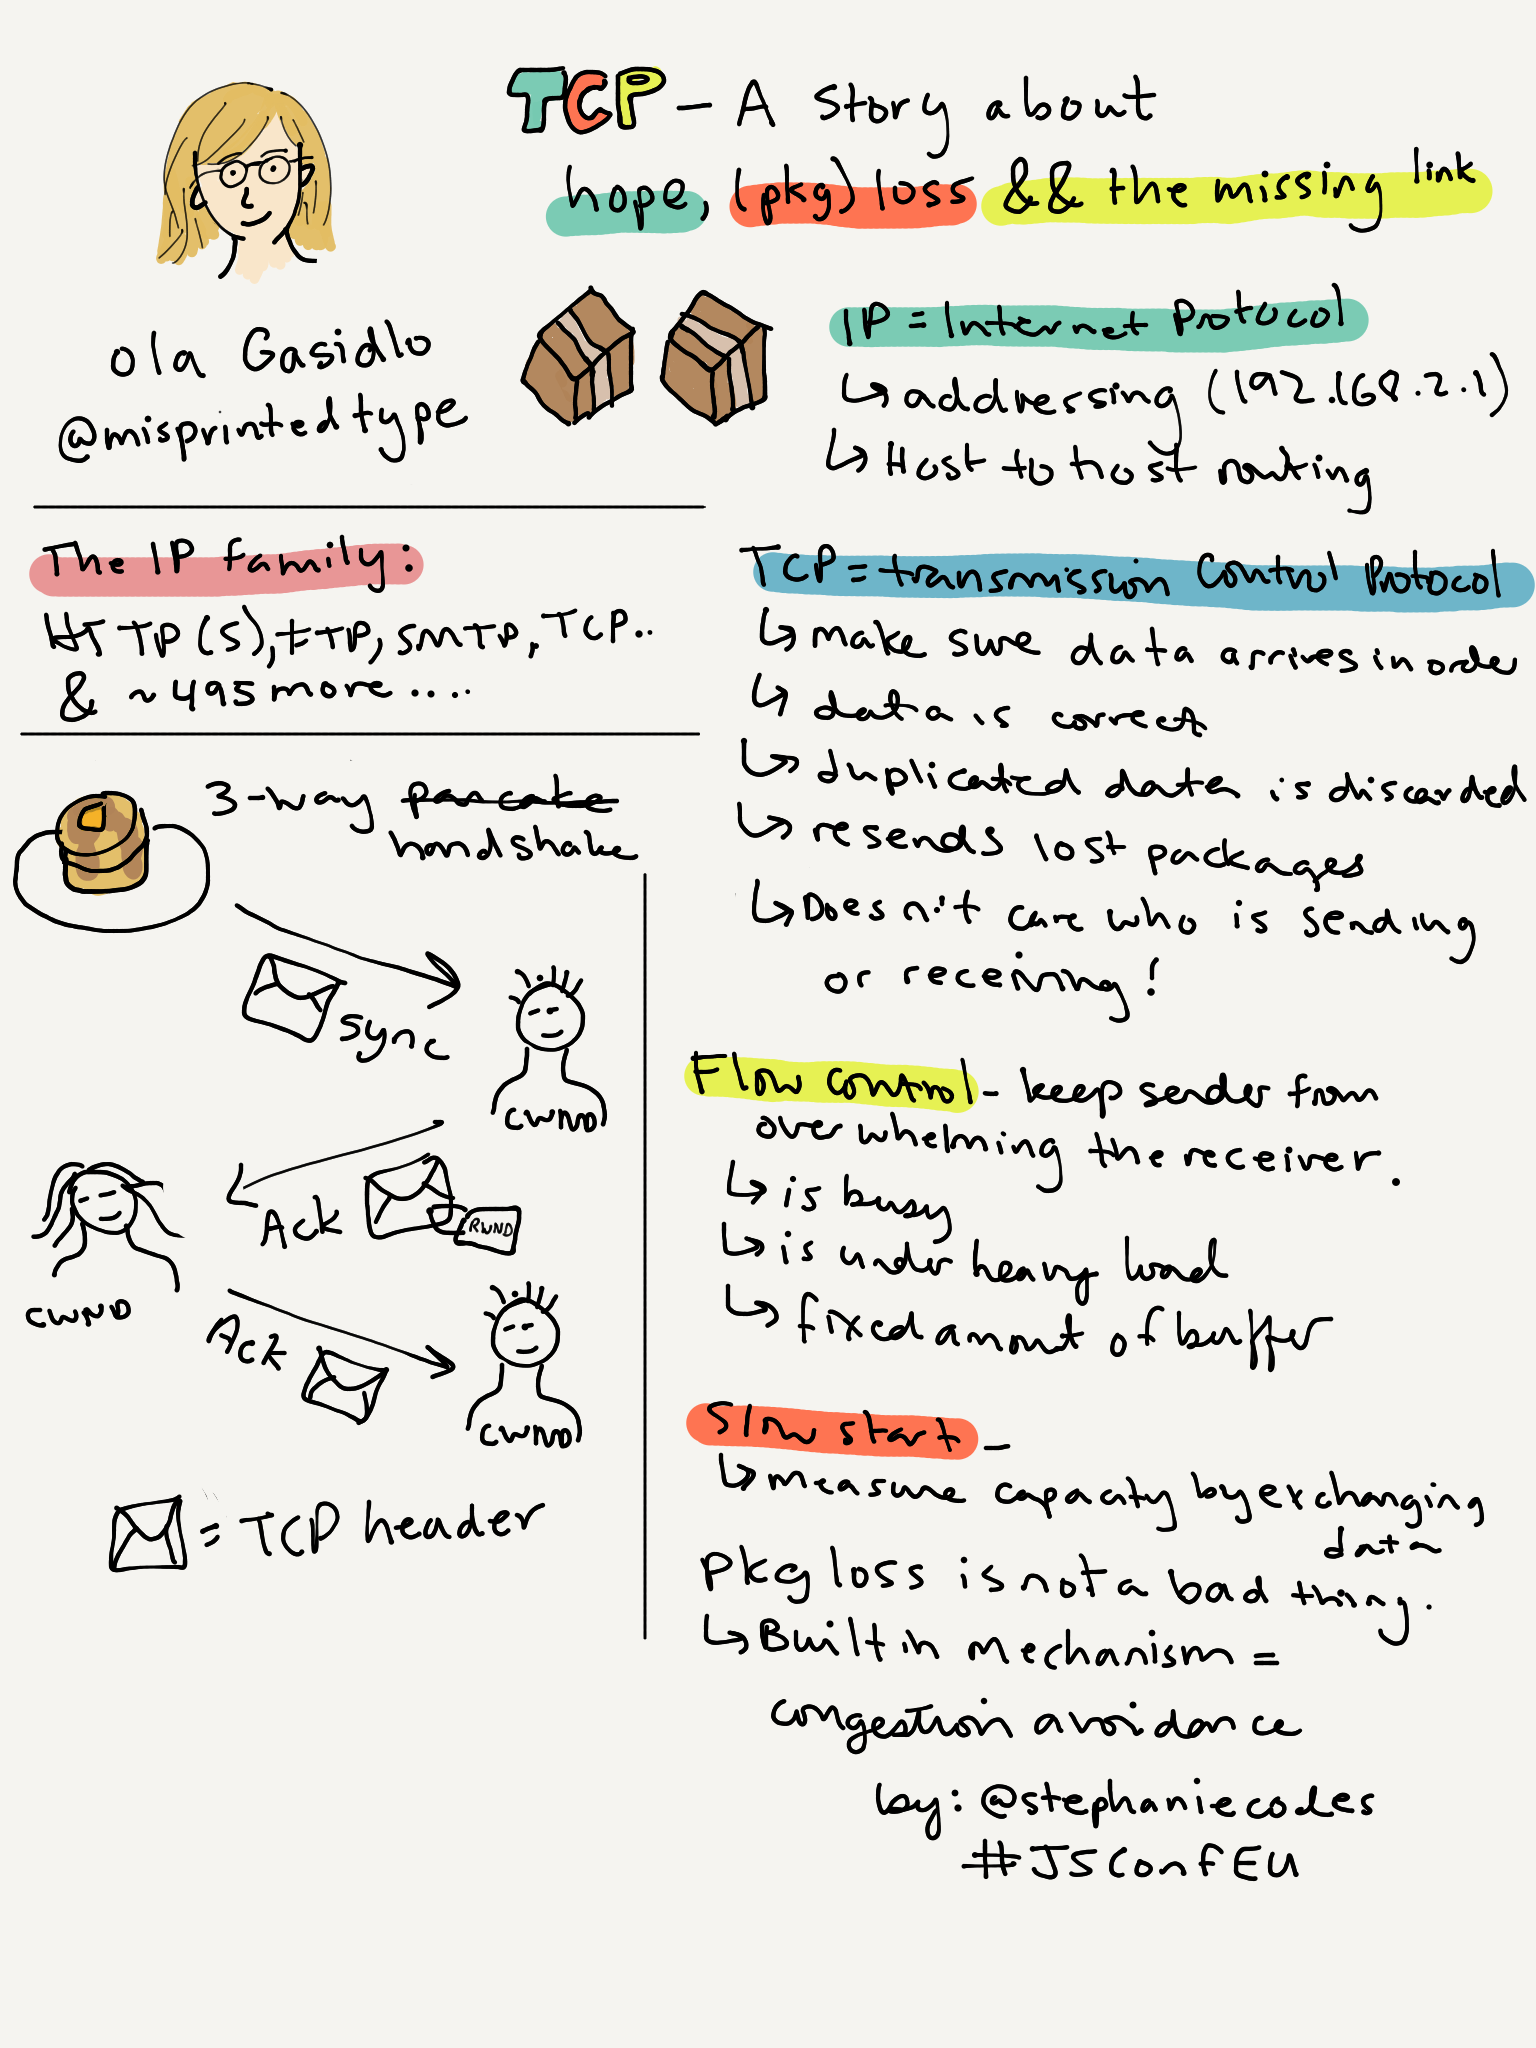 TCP - A story about
hope, (pkg) loss && the missing link
ola Gasidlo
@misprintedtype
IP = Internet Protocol
↳ addressing (192.168.2.1)
↳ Host to host routing
The IP family:
HTTP(S), FTP, SMTP, TCP..
& ~495 more....
3-way pancake
handshake
sync
CWND
Ack
RWND
CWND
Ack
CWND
= TCP header
TCP = transmission Control Protocol
↳ make sure data arrives in order
↳ data is correct
↳ duplicated data is discarded
↳ resends lost packages
↳ Doesn't care who is sending
or receiving!
Flow control - keep sender from
overwhelming the receiver.
↳ is busy
↳ is under heavy load
↳ fixed amount of buffer
Slow start -
↳ measure capacity by exchanging
data
pkg loss is not a bad thing.
↳ Built in mechanism =
congestion avoidance
by: @stephaniecodes
#JSConfEU